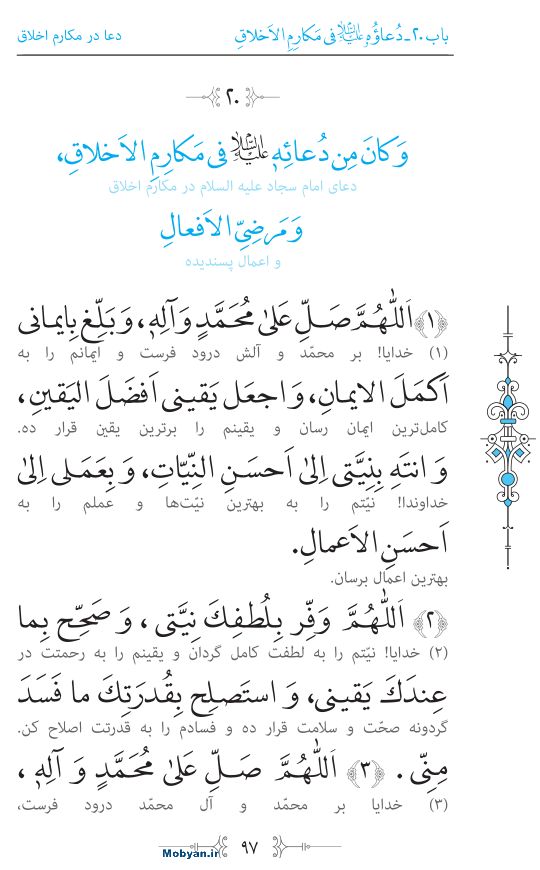 باب ۲۰ـ دُعاؤُهُ عَلَیْهِ‌السَّلام فی مَکارِمِ الاَخلاقِ
دعا در مکارم اخلاق
۲۰
وَ کانَ مِن دُعائِهِ عَلَیْهِ‌السَّلام فی مَکارِمِ الاَخلاقِ،
دعای امام سجاد علیه السلام در مکارم اخلاق
وَ مَرضِیِّ الاَفعالِ
و اعمال پسندیده
﴿۱﴾ اَللّٰهُمَّ صَلِّ عَلیٰ مُحَمَّدٍ وَ آلِهِ، وَ بَلِّغ بِایمانی
(۱) خدایا! بر محمّد و آلش درود فرست و ایمانم را به
اَکمَلَ الایمانِ، وَ اجعَل یَقینی اَفضَلَ الیَقینِ،
کامل‌ترین ایمان رسان و یقینم را برترین یقین قرار ده.
وَ انتَهِ بِنِیَّتی اِلیٰ اَحسَنِ النِّیّاتِ، وَ بِعَمَلی اِلیٰ
خداوندا! نیّتم را به بهترین نیّت‌ها و عملم را به
اَحسَنِ الاَعمالِ.
بهترین اعمال برسان.
﴿۲﴾ اَللّٰهُمَّ وَفِّر بِلُطفِكَ نِیَّتی ، وَ صَحِّح بِما
(۲) خدایا! نیّتم را به لطفت کامل گردان و یقینم را به رحمتت در
عِندَكَ یَقینی، وَ استَصلِح بِقُدرَتِكَ ما فَسَدَ
گردونه صحّت و سلامت قرار ده و فسادم را به قدرتت اصلاح کن.
مِنّی . ﴿۳﴾ اَللّٰهُمَّ صَلِّ عَلیٰ مُحَمَّدٍ وَ آلِهِ ،
(۳) خدایا بر محمّد و آل محمّد درود فرست،
۹۷
Mobyan.ir